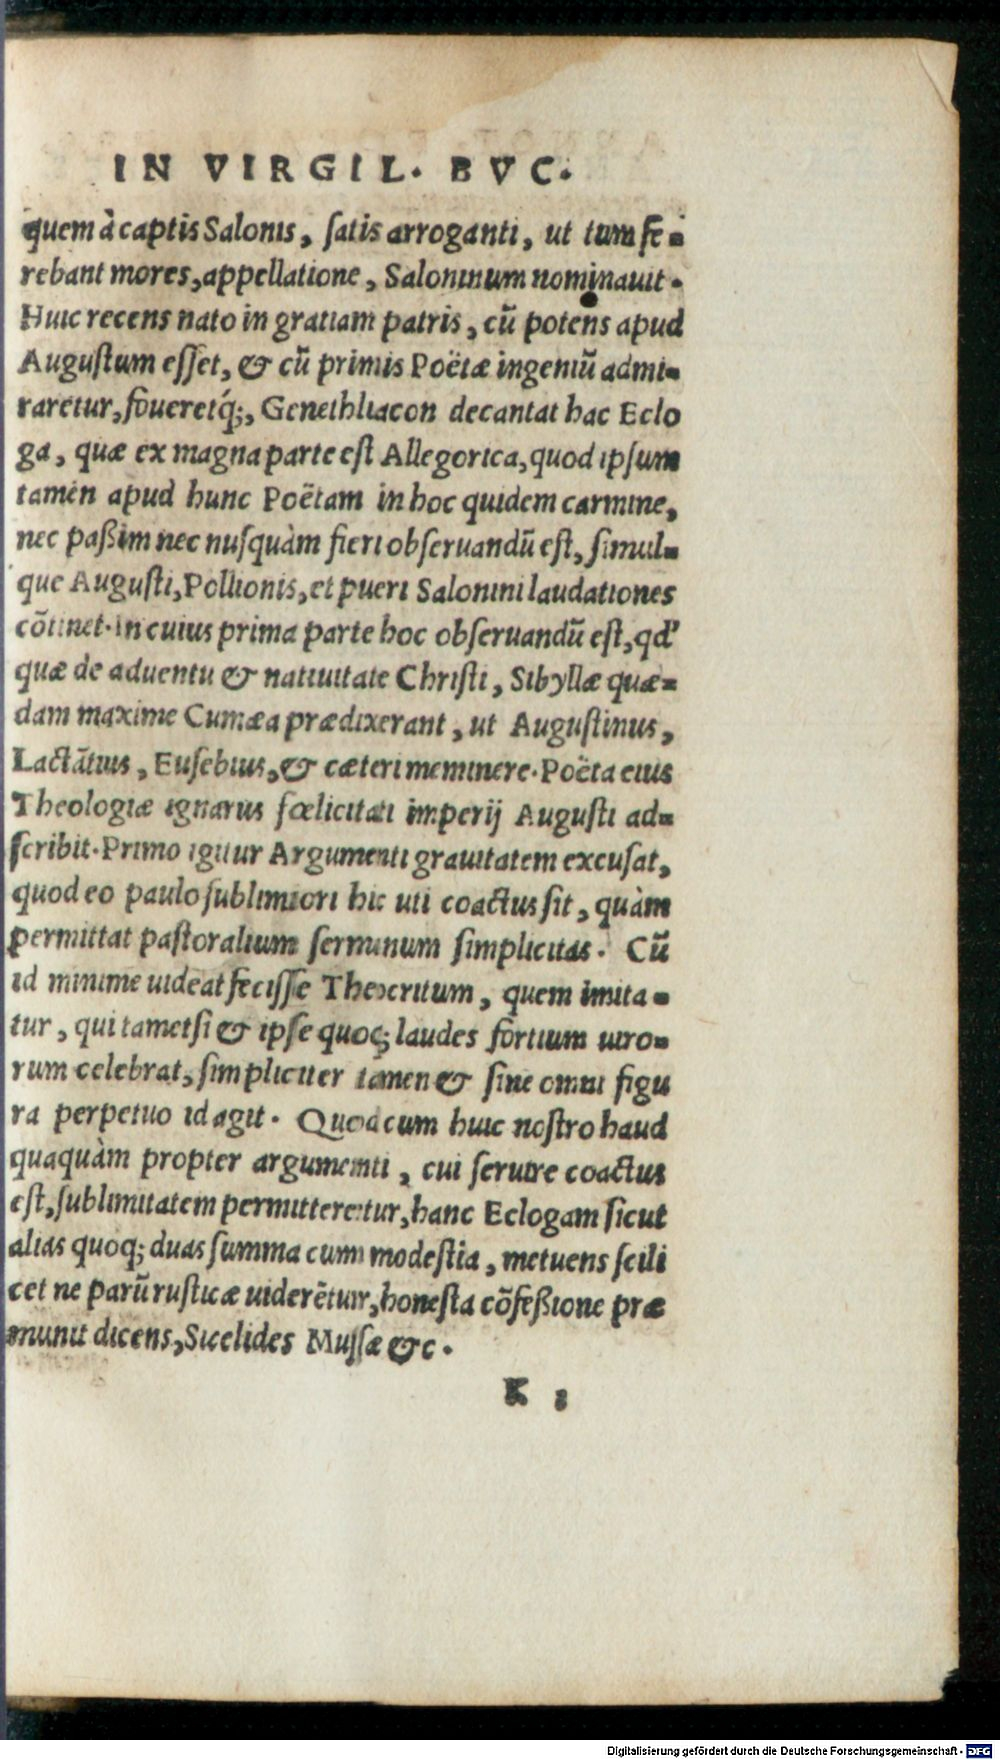 IN VIRGIL. BVC.
quem à captis Salonis, ſatis arroganti, ut tum fe-
rebant mores, appellatione, Saloninum nominauit.
Huic recens nato in gratiam patris, cũ potens apud
Auguſtum eſſet, & cũ primis Poëtæ ingeniũ admi-
raretur, foueretq́;, Genethliacon decantat hac Eclo
ga, quæ ex magna parte eſt Allegorica, quod ipſum
tamen apud hunc Poëtam in hoc quidem carmine,
nec paßim nec nuſquàm fieri obſeruandũ eſt, ſimul-
que Auguſti, Pollionis, et pueri Salonini laudationes
cõtinet. In cuius prima parte hoc obſeruandũ eſt, qd'
quæ de aduentu & natiuitate Chriſti, Sibyllæ quæ-
dam maxime Cumæa prædixerant, ut Auguſtinus,
Lactãtius, Euſebius, & cæteri meminere. Poëta eius
Theologiæ ignarus fœlicitati imperij Auguſti ad-
ſcribit. Primo igitur Argumenti grauitatem excuſat,
quod eo paulo ſublimiori hic uti coactus ſit, quàm
permittat paſtoralium ſermonum ſimplicitas. Cũ
id minime uideat feciſſe Theocritum, quem imita-
tur, qui tametſi & ipſe quoq; laudes fortium uiro-
rum celebrat, ſimpliciter tamen & ſine omni figu
ra perpetuo id agit. Quod cum huic noſtro haud
quaquàm propter argumenti, cui ſeruire coactus
eſt, ſublimitatem permitteretur, hanc Eclogam ſicut
alias quoq; duas ſumma cum modeſtia, metuens ſcili
cet ne parũ ruſticæ uiderẽtur, honeſta cõfeßione præ
munit dicens, Sicelides Muſſæ &c.
K 2
Digitalisierung gefördert durch die Deutsche Forschungsgemeinschaft - DFG